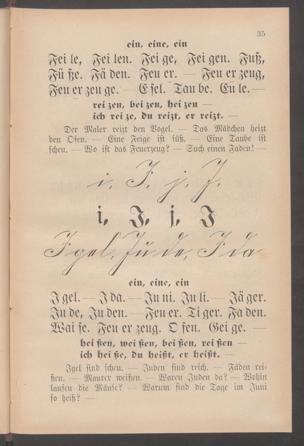 35
ein, eine, ein
Fei le, Fei len. Fei ge, Fei gen. Fuß,
Fü ße. Fa den. Feu er. — Feu er zeug,
Feu er zeu ge. — E sel. Tau be. Eu le. —
rei zen, bei zen, hei zen —
ich rei ze, du reizt, er reizt. —
Der Maler reizt den Vogel. — Das Mädchen heizt
den Ofen. — Eine Feige ist süß. — Eine Taube ist
scheu. — Wo ist das Feuerzeug? — Such einen Faden!
i, J, j, J.
i, J, j, J
Igel, Ju de, I da
ein, eine, ein
I gel. — I da. — Ju ni. Ju li. — Jä ger.
Ju de, Ju den. — Feu er. Ti ger. Fa den.
Wai se. Feu er zeug. O fen. Gei ge. —
hei ßen, wei ßen, bei ßen, rei ßen —
ich hei ße, du heißt, er heißt. —
Igel sind scheu. — Juden sind reich. — Fäden rei-
ßen. — Maurer weißen. — Waren Juden da? — Wohin
laufen die Mäuse? — Warum sind die Tage im Juni
so heiß? —